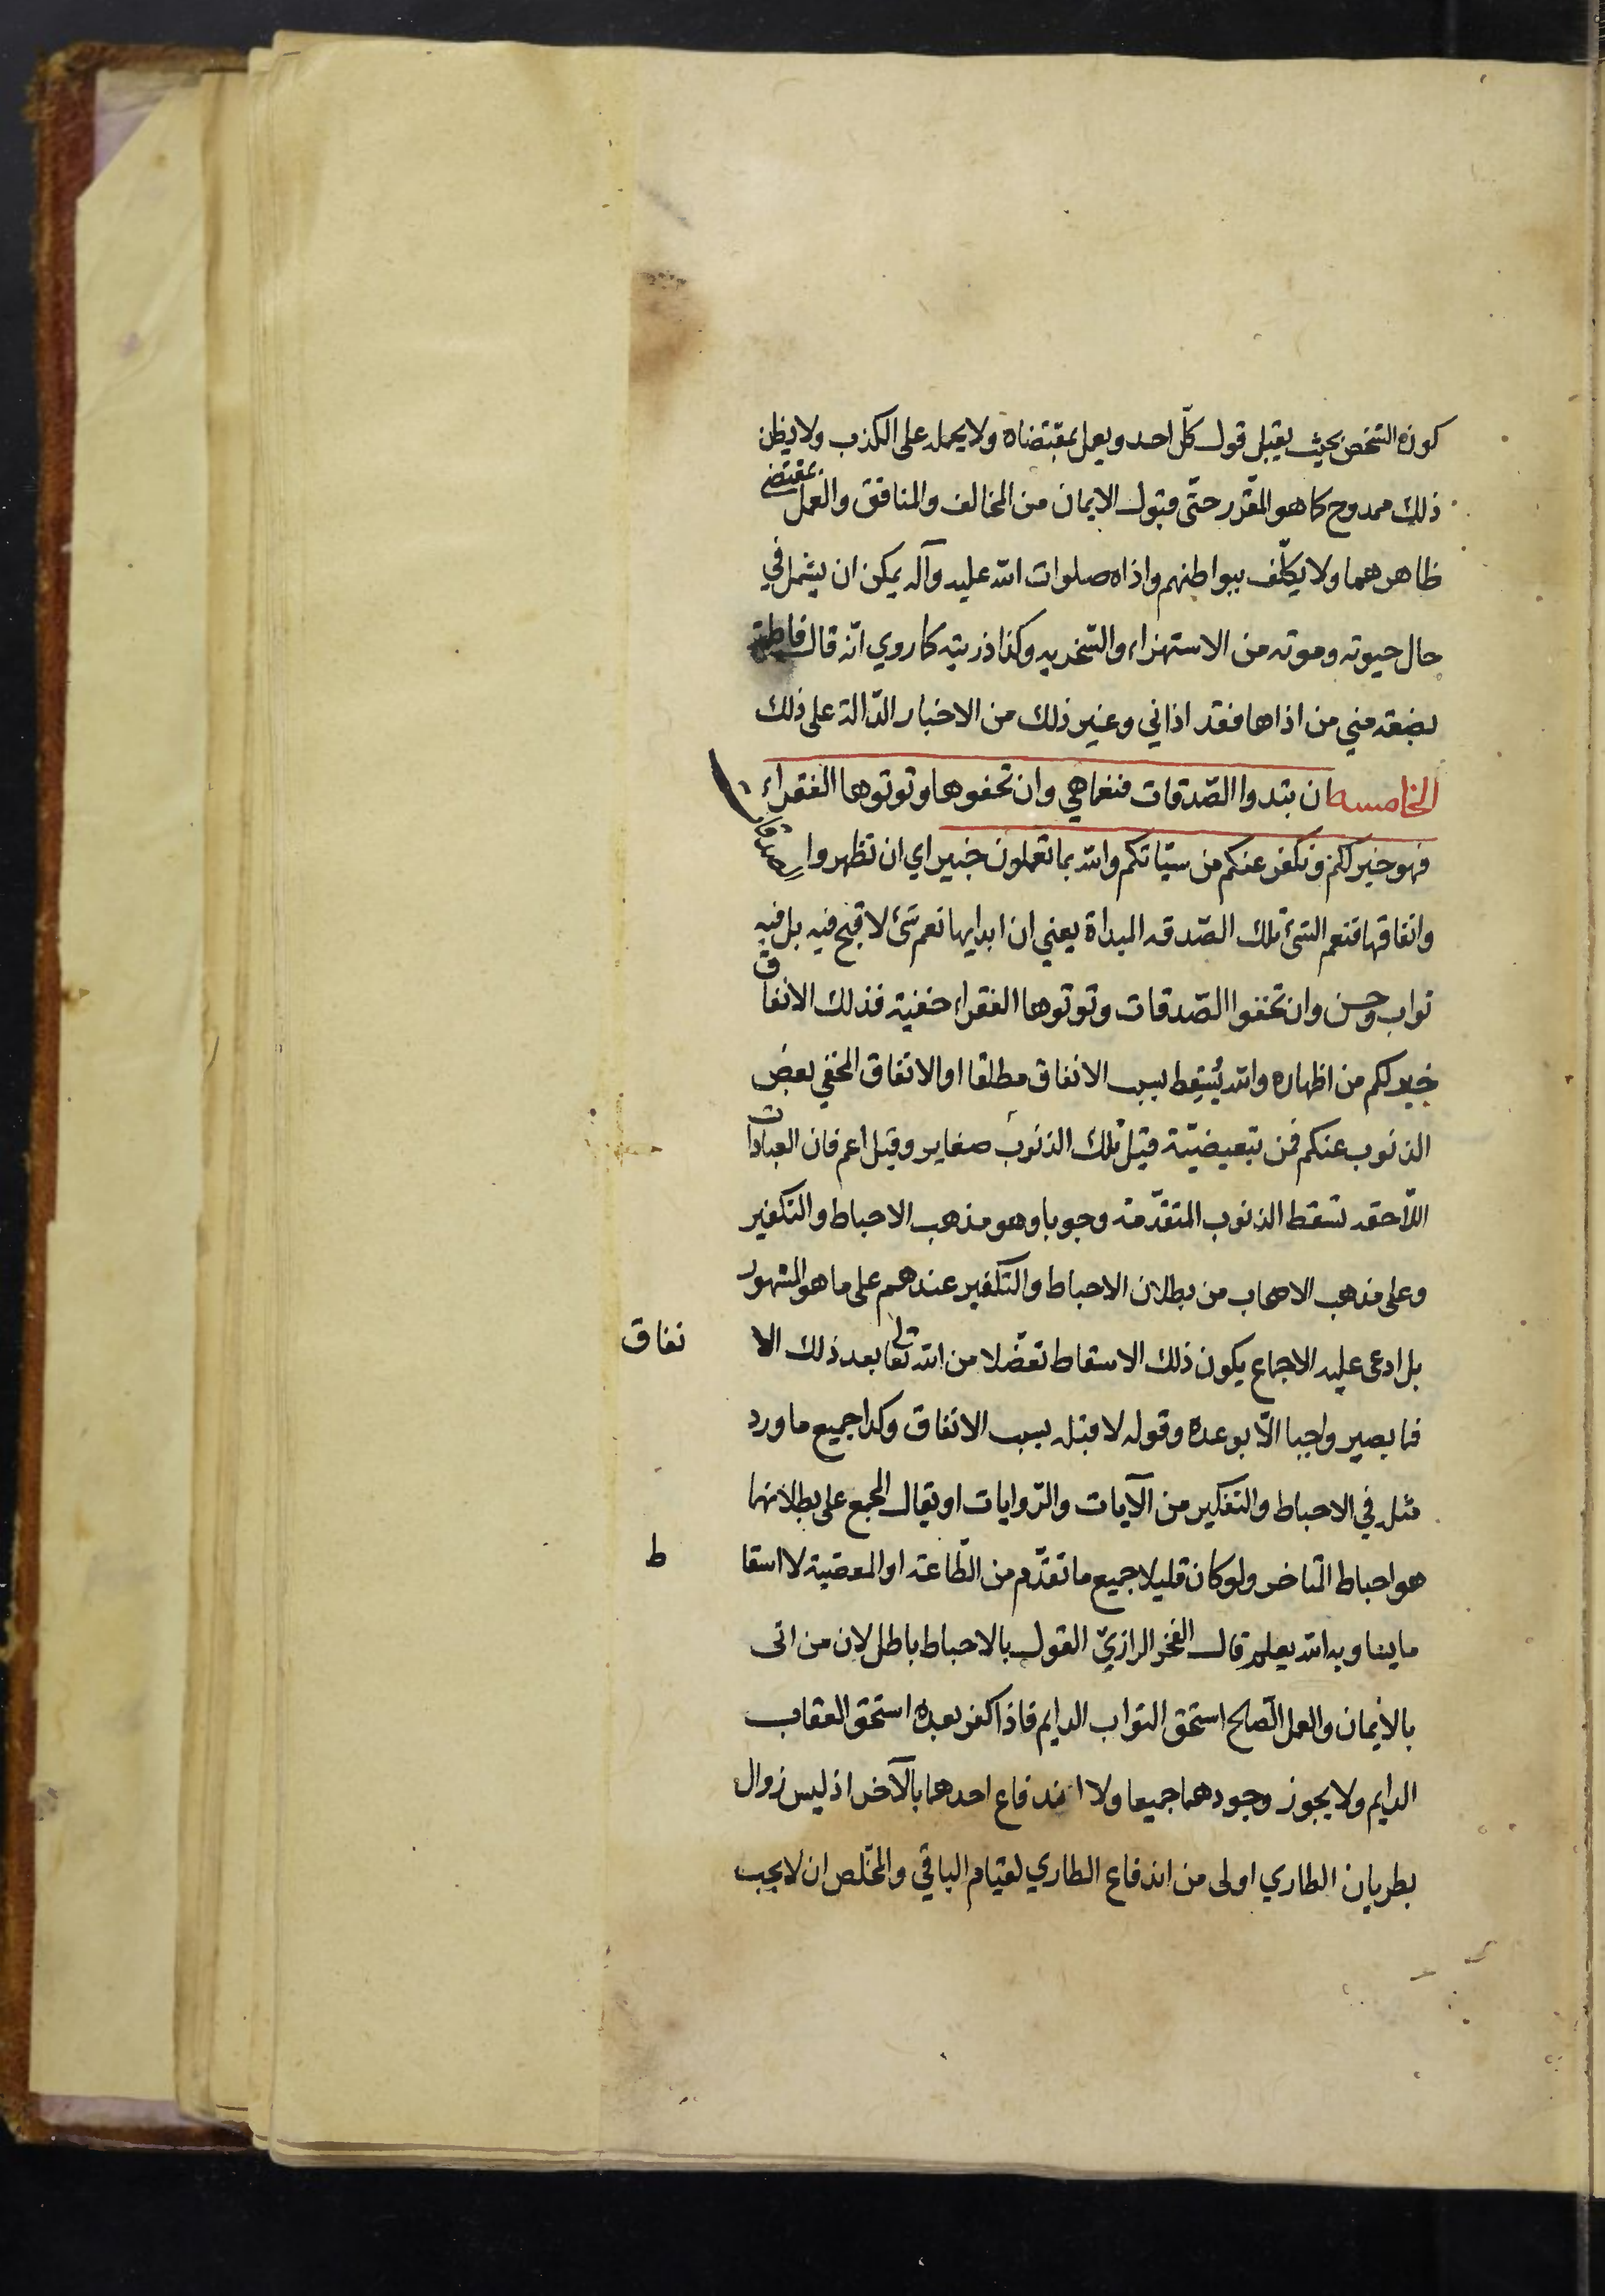 كون الشخص بحيث يقبل قول كلّ احد ويعمل بمقتضاه ولا يحمله على الكذب ولا يظن
ذلك ممدوح كما هو المقرّر حتّى قبول الايمان من المخالف والمنافق والعمل بمقتضى
ظاهرهما ولا يكلّف ببواطنهم واذاه صلوات الله عليه وآله يمكن ان يشمل في
حال حيوته وموته من الاستهزاء والسّخريه وكذا ذريته كما روي انّه قال فاطمة
بضعة مني من اذاها فقد اذاني وغير ذلك من الاخبار الدّالة على ذلك
الخامسه ان تبدوا الصّدقات فنعما هي وان تخفوها وتوتوها الفقراء
فهو خير لكم ونكفر عنكم من سيّاتكم والله بما تعملون خبير اي ان تظهروا صدقه
وانفاقها فنعم الشئ تلك الصّدقه المبداة يعني ان ابدايها نعم شئ لا قبح فيه بل فيه
ثواب وحسن وان تخفوا الصّدقات وتوتوها الفقراء خفية فذلك الانفاق
خير لكم من اظهاره والله يُسقط بسبب الانفاق مطلقا او الانفاق المخفي بعض
الذنوب عنكم فمن تبعيضيّة قيل تلك الذنوب صغاير وقيل اعم فان العبادات
اللّاحقه تسقط الذنوب المتقدّمة وجوبا وهو مذهب الاحباط والتكفير
وعلى مذهب الاصحاب من بطلان الاحباط والتكفير عندهم على ما هو المشهور
بل ادعى عليه الاجماع يكون ذلك الاسقاط تفضّلا من الله تعالى بعد ذلك الا نفاق
فما يصير واجبا الّا بوعده وقوله لا قبله بسبب الانفاق وكذا جميع ما ورد
مثله في الاحباط والتفكير من الآيات والرّوايات او يقال المجمع على بطلانهما
هو احباط المتاخر ولو كان قليلا جميع ما تقدّم من الطّاعة او المعصية لا اسقا ط
ما يساويه الله يعلم قال الفخر الرازيّ القول بالاحباط باطل لان من اتى
بالايمان والعمل الصّالح استحق الثواب الدايم فاذا كفر بعده استحق العقاب
الدايم ولا يجوز وجودهما جميعا ولا اندفاع احدهما بالآخر اذ ليس زوال
بطريان الطاري اولى من اندفاع الطاري لقيام الباقي والمخلّص ان لا يجب